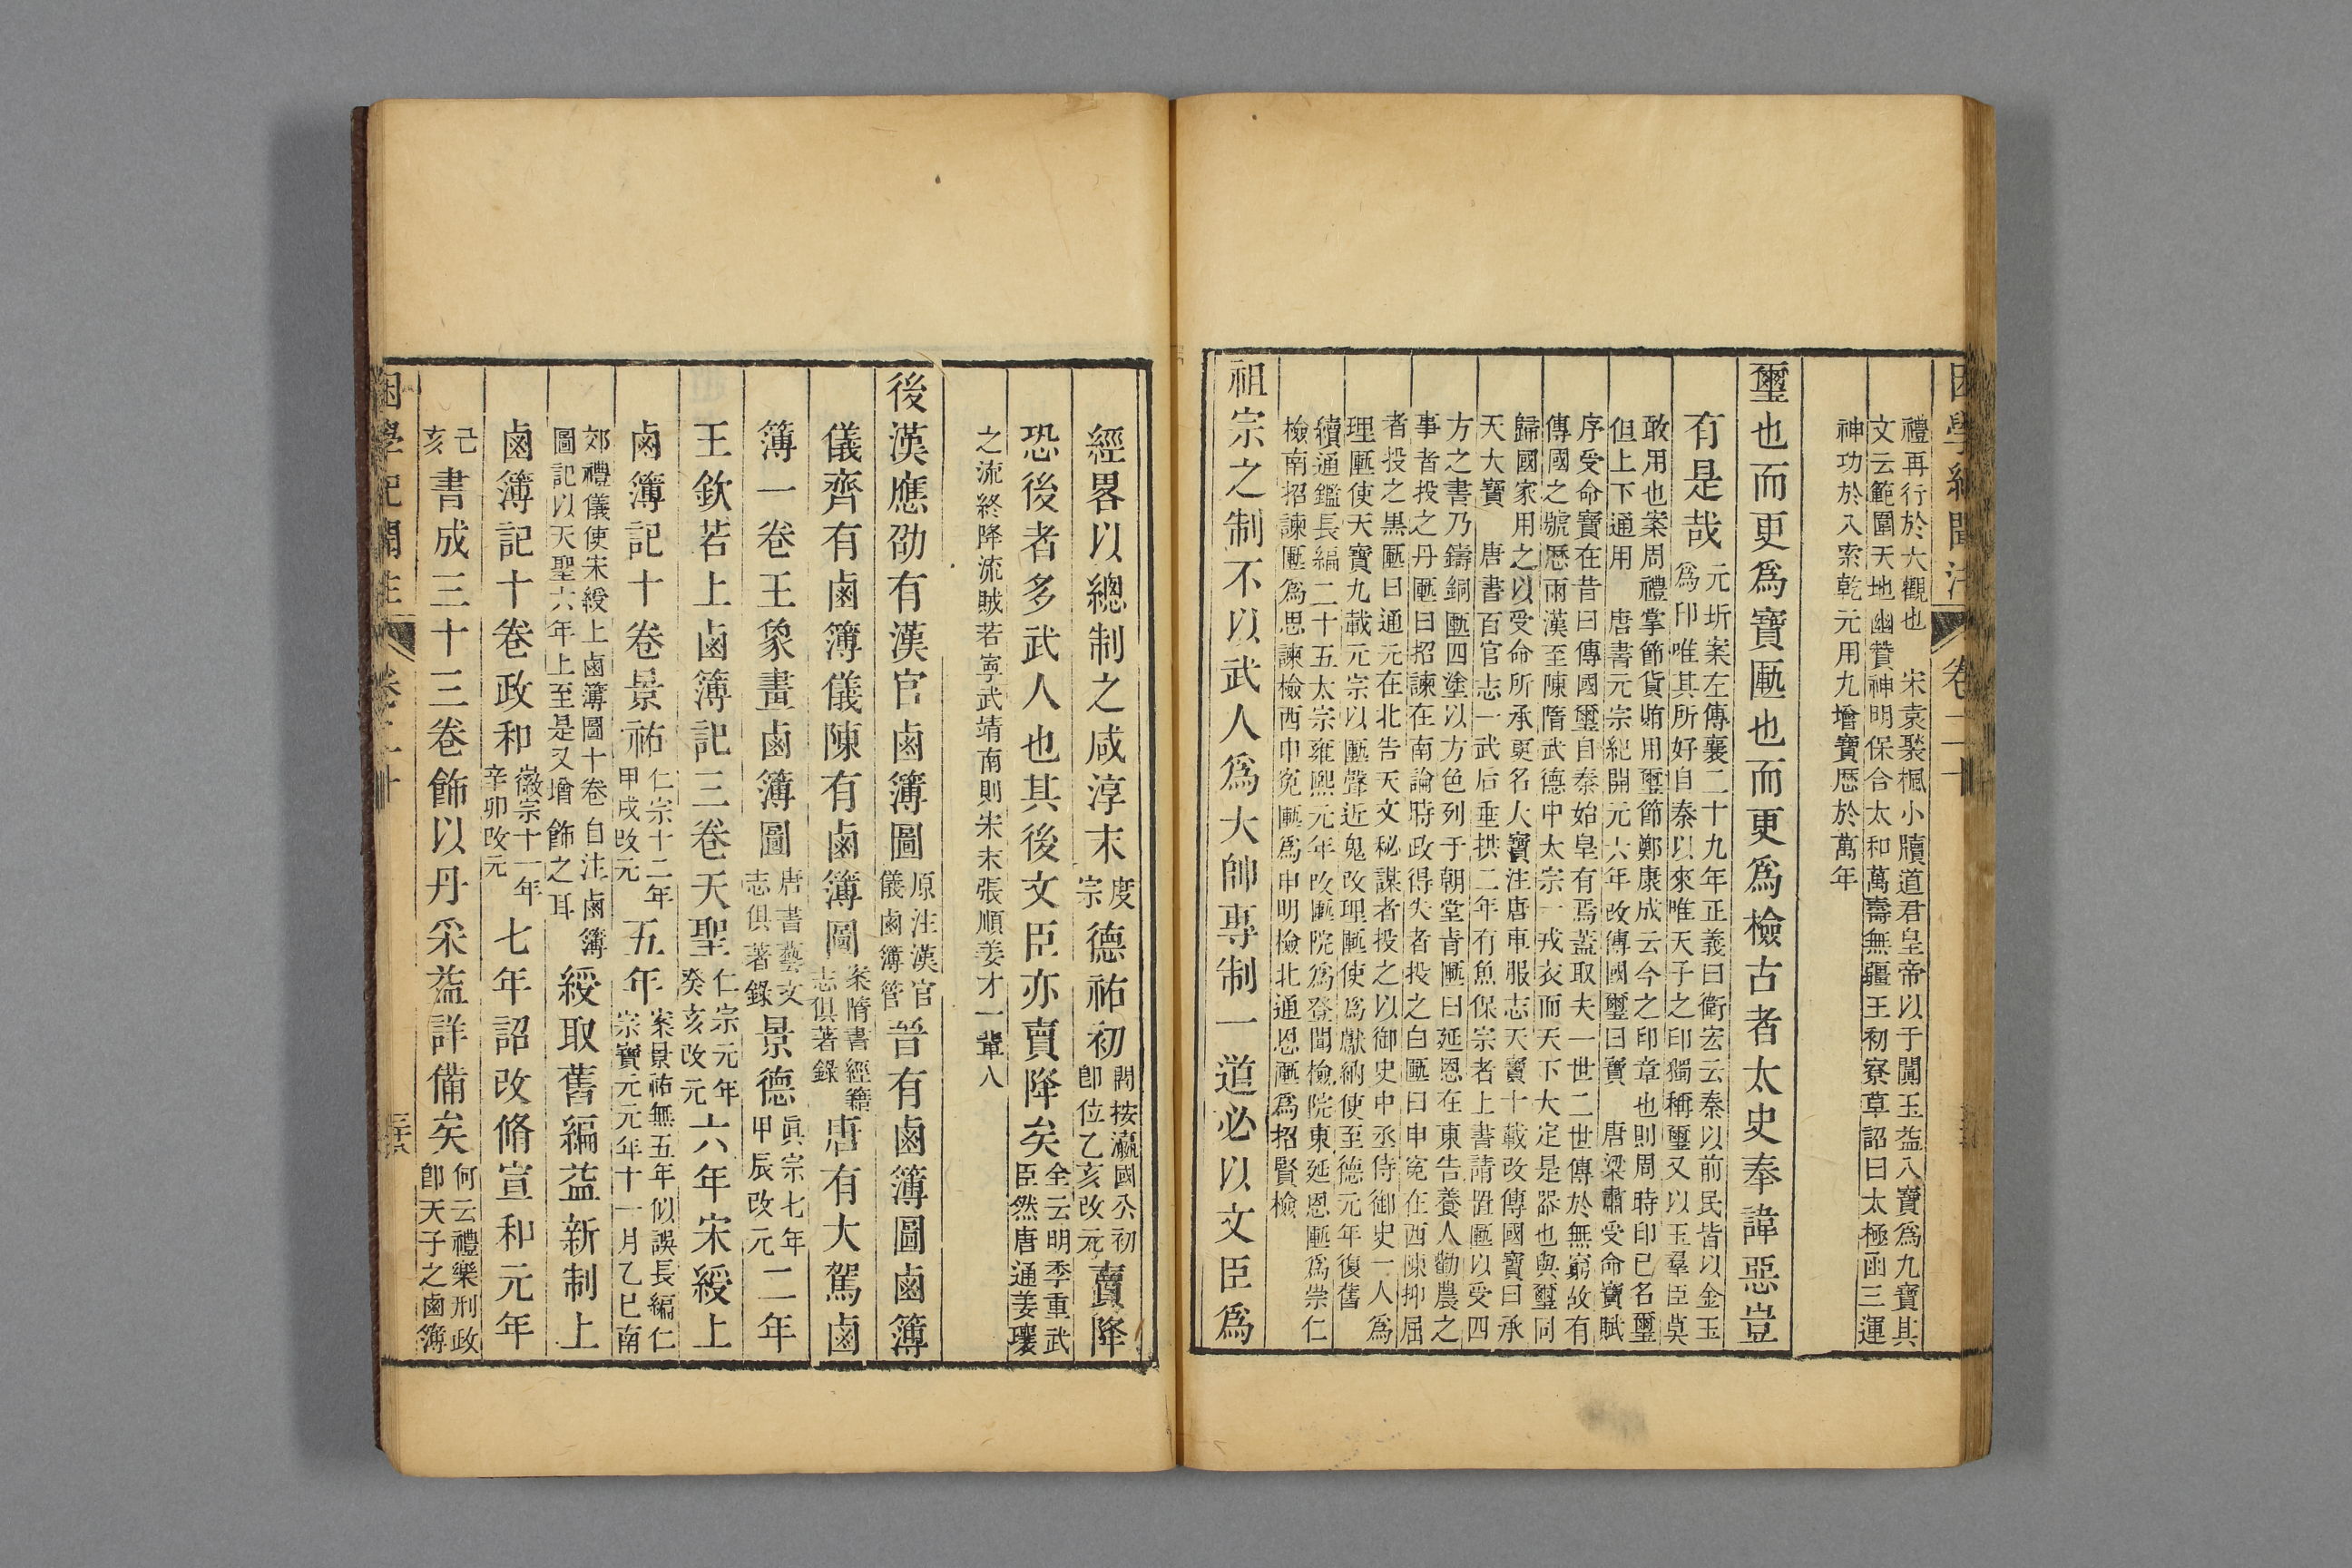 困學紀聞注 卷二十
禮再行於大觀也 宋袁褧楓小牘道君皇帝以于闐玉益八寶爲九寶其
文云範圍天地幽贊神明保合太和萬壽無疆王初寮草詔曰太極函三運
神功於八索乾元用九增寶歷於萬年
璽也而更爲寶匭也而更爲檢古者太史奉諱惡豈
有是哉
元圻案左傳襄二十九年正義曰衛宏云秦以前民皆以金玉
爲印唯其所好自秦以來唯天子之印獨稱璽又以玉羣臣莫
敢用也案周禮掌節貨賄用璽節鄭康成云今之印章也則周時印已名璽
但上下通用 唐書元宗紀開元六年改傳國璽曰寶 唐梁肅受命寶賦
序受命寶在昔曰傳國璽自秦始皇有焉蓋取夫一世二世傳於無窮故有
傳國之號歷兩漢至陳隋武德中太宗一戎衣而天下大定是器也與璽同
歸國家用之以受命所承更名大寶注唐車服志天寶十載改傳國寶曰承
天大寶 唐書百官志一武后垂拱二年有魚保宗者上書請置匭以受四
方之書乃鑄銅匭四塗以方色列于朝堂青匭曰延恩在東告養人勸農之
事者投之丹匭曰招諫在南論時政得失者投之白匭曰申冤在西陳抑屈
者投之黑匭曰通元在北告天文秘謀者投之以御史中丞侍御史一人爲
理匭使天寶九載元宗以匭聲近鬼改理匭使爲獻納使至德元年復舊
續通鑑長編二十五太宗雍熙元年改匭院爲登聞檢院東延恩匭爲崇仁
檢南招諫匭爲思諫檢西申冤匭爲申明檢北通恩匭爲招賢檢
祖宗之制不以武人爲大帥專制一道必以文臣爲
經畧以總制之咸淳末
度
宗
德祐初
閻按瀛國公初
卽位乙亥改元
賣降
恐後者多武人也其後文臣亦賣降矣
全云明季重武
臣然唐通姜瓖
之流終降流賊若寧武靖南則宋末張順姜才一輩人
後漢應劭有漢官鹵簿圖
原注漢官
儀鹵簿管
晉有鹵簿圖鹵簿
儀齊有鹵簿儀陳有鹵簿圖
案隋書經籍
志俱著錄
唐有大駕鹵
簿一卷王象畫鹵簿圖
唐書藝文
志俱著錄
景德
眞宗七年
甲辰改元
二年
王欽若上鹵簿記三卷天聖
仁宗元年
癸亥改元
六年宋綬上
鹵簿記十卷景祐
仁宗十二年
甲戌改元
五年
案景祐無五年似誤長編仁
宗寶元元年十一月乙巳南
郊禮儀使宋綬上鹵簿圖十卷自注鹵簿
圖記以天聖六年上至是又增飾之耳
綬取舊編益新制上
鹵簿記十卷政和
徽宗十一年
辛卯改元
七年詔改脩宣和元年
己
亥
書成三十三卷飾以丹采益詳備矣
何云禮樂刑政
卽天子之鹵簿
困學紀聞注 卷二十